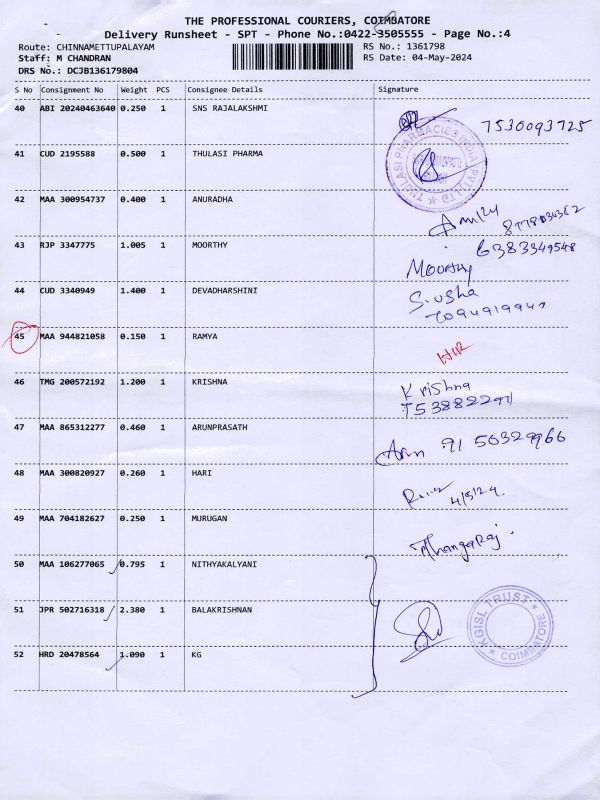 THE PROFESSIONAL COURIERS, COIMBATORE
Delivery Runsheet - SPT - Phone No.:0422-3505555 - Page No.:4
Route: CHINNAMETTUPALAYAM RS No.: 1361798
Staff: M CHANDRAN RS Date: 04-May-2024
DRS No.: DCJB136179804
S No Consignment No Weight PCS Consignee Details Signature
40 ABI 20240463640 0.250 1 SNS RAJALAKSHMI
7530093725
41 CUD 2195588 0.500 1 THULASI PHARMA
THULASI PHARMACIES INDIA PVT LTD
42 MAA 300954737 0.400 1 ANURADHA
43 RJP 3347775 1.005 1 MOORTHY
6383349548
Moorthy
44 CUD 3340949 1.400 1 DEVADHARSHINI
S.usha
45 MAA 944821058 0.150 1 RAMYA
46 TMG 200572192 1.200 1 KRISHNA
Krishna
47 MAA 865312277 0.460 1 ARUNPRASATH
Arun 91 50329966
48 MAA 300820927 0.260 1 HARI
4/5/24.
49 MAA 704182627 0.250 1 MURUGAN
Thangaraj.
50 MAA 106277065 0.795 1 NITHYAKALYANI
51 JPR 502716318 2.380 1 BALAKRISHNAN
KGISL TRUST
COIMBATORE
52 HRD 20478564 1.090 1 KG